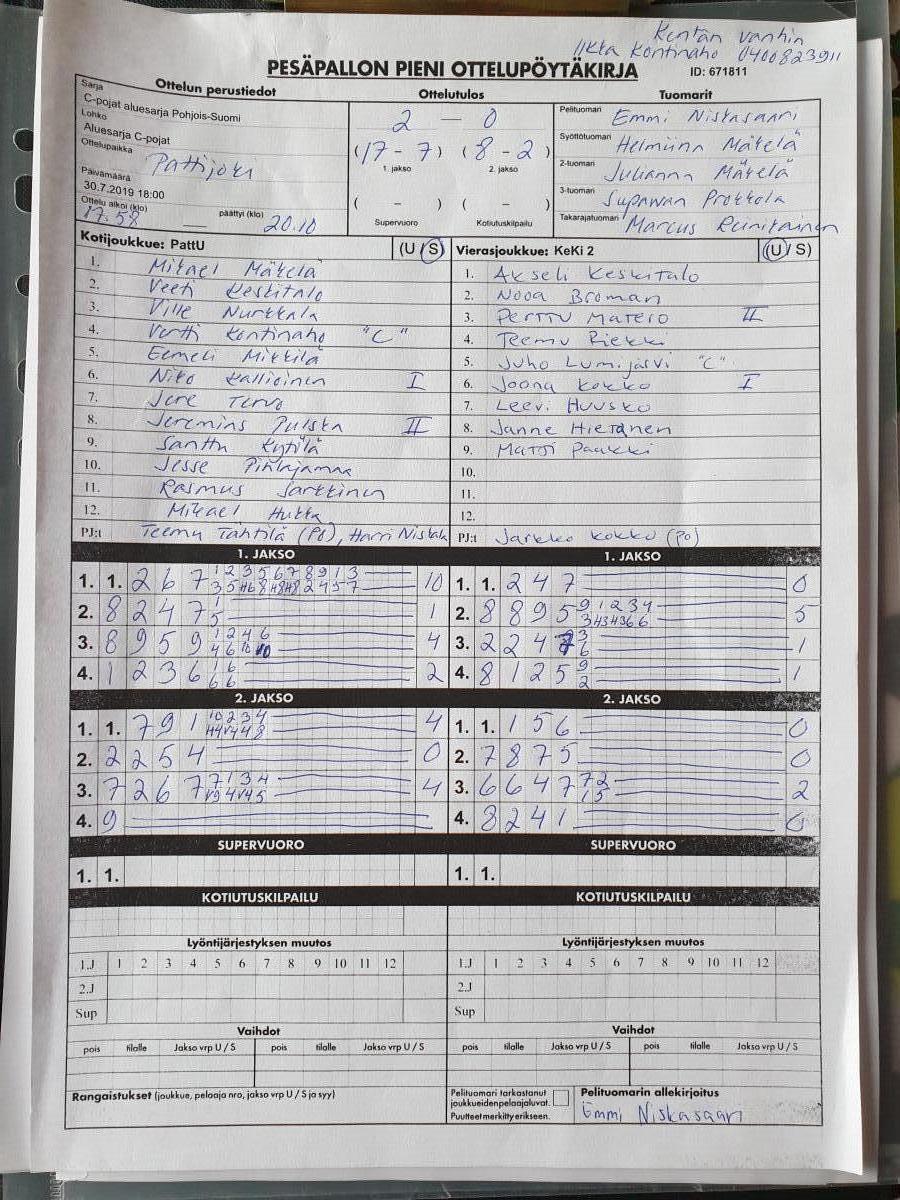 Kentän vanhin
Ilkka Kontinaho 0400823911
PESÄPALLON PIENI OTTELUPÖYTÄKIRJA
ID: 671811
Ottelun perustiedot
Sarja
C-pojat aluesarja Pohjois-Suomi
Lohko
Aluesarja C-pojat
Ottelupaikka
Pattijoki
Päivämäärä
30.7.2019 18:00
Ottelu alkoi (klo) päättyi (klo)
17:58 — 20.10
Ottelutulos
2 — 0
(17 - 7) (8 - 2)
1. jakso 2. jakso
( - ) ( - )
Supervuoro Kotiutuskilpailu
Tuomarit
Pelituomari Emmi Niskasaari
Syöttötuomari Helmiina Mäkelä
2-tuoman Julianna Mäkelä
3-tuoman Supawan Prokkola
Takarajatuomari Marcus Reinikainen
Kotijoukkue: PattU (U / S)
1. Mikael Mäkelä
2. Veeti Keskitalo
3. Ville Nurkkala
4. Vertti Kontinaho "C"
5. Eemeli Mikkilä
6. Niko Kallioinen I
7. Jere Tervo
8. Jeremias Pulska II
9. Santtu Kytölä
10. Jesse Pihlajamaa
11. Rasmus Sarkkinen
12. Mikael Hukka
PJ:t Teemu Tähtilä (PO), Harri Niskala
Vierasjoukkue: KeKi 2 (U / S)
1. Akseli Keskitalo
2. Nooa Broman
3. Perttu Matero II
4. Teemu Riekki
5. Juho Lumijärvi "C"
6. Joona Kokko I
7. Leevi Huusko
8. Janne Hietanen
9. Matti Paakki
10.
11.
12.
PJ:t Jarkko Kokko (PO)
1. JAKSO
1. 1. 2 6 7 10
2. 8 2 4 7 1 5 1
3. 8 9 5 9 4
4. 1 2 3 6 1 6 6 6 2
1. JAKSO
1. 1. 2 4 7 0
2. 8 8 9 5 9 1 2 3 4 5
3. 2 2 4 1
4. 8 1 2 5 9 2 1
2. JAKSO
1. 1. 7 9 1 10 2 3 4 4
2. 2 2 5 4 0
3. 7 2 6 7 7 1 3 4 4
4. 9
2. JAKSO
1. 1. 1 5 6 0
2. 7 8 7 5 0
3. 6 6 4 7 7 2 1 5 2
4. 8 2 4 1 0
SUPERVUORO
1. 1.
SUPERVUORO
1. 1.
KOTIUTUSKILPAILU
KOTIUTUSKILPAILU
Lyöntijärjestyksen muutos
1.J 1 2 3 4 5 6 7 8 9 10 11 12
2.J
Sup
Lyöntijärjestyksen muutos
1.J 1 2 3 4 5 6 7 8 9 10 11 12
2.J
Sup
Vaihdot
pois tilalle Jakso vrp U / S pois tilalle Jakso vrp U / S
Vaihdot
pois tilalle Jakso vrp U / S pois tilalle Jakso vrp U / S
Rangaistukset (joukkue, pelaaja nro, jakso vrp U / S ja syy)
Pelituomari tarkastanut
joukkueidenpelaajaluvat.
Puutteet merkitty erikseen.
Pelituomarin allekirjoitus
Emmi Niskasaari